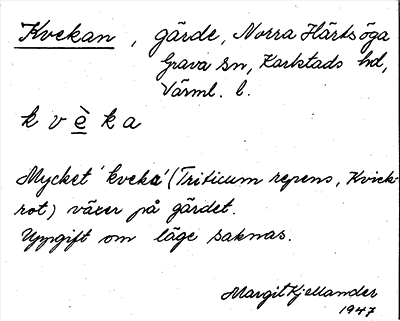 Kvekan, gärde, Norra Härtsöga
Grava sn, Karlstads hd,
Värml. l.
k v è k a
Mycket 'kveka' (Triticum repens, Kvick-
rot) växer på gärdet.
Uppgift om läge saknas.
Margit Kjellander
1947